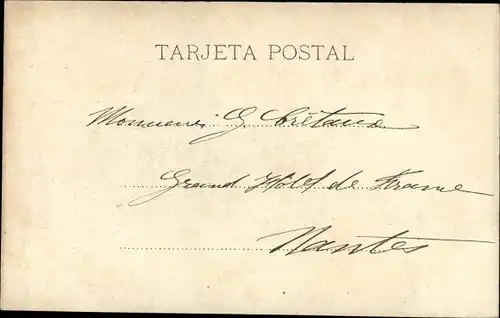 TARJETA POSTAL
Monsieur G.
Grand Hôtel de France
Nantes